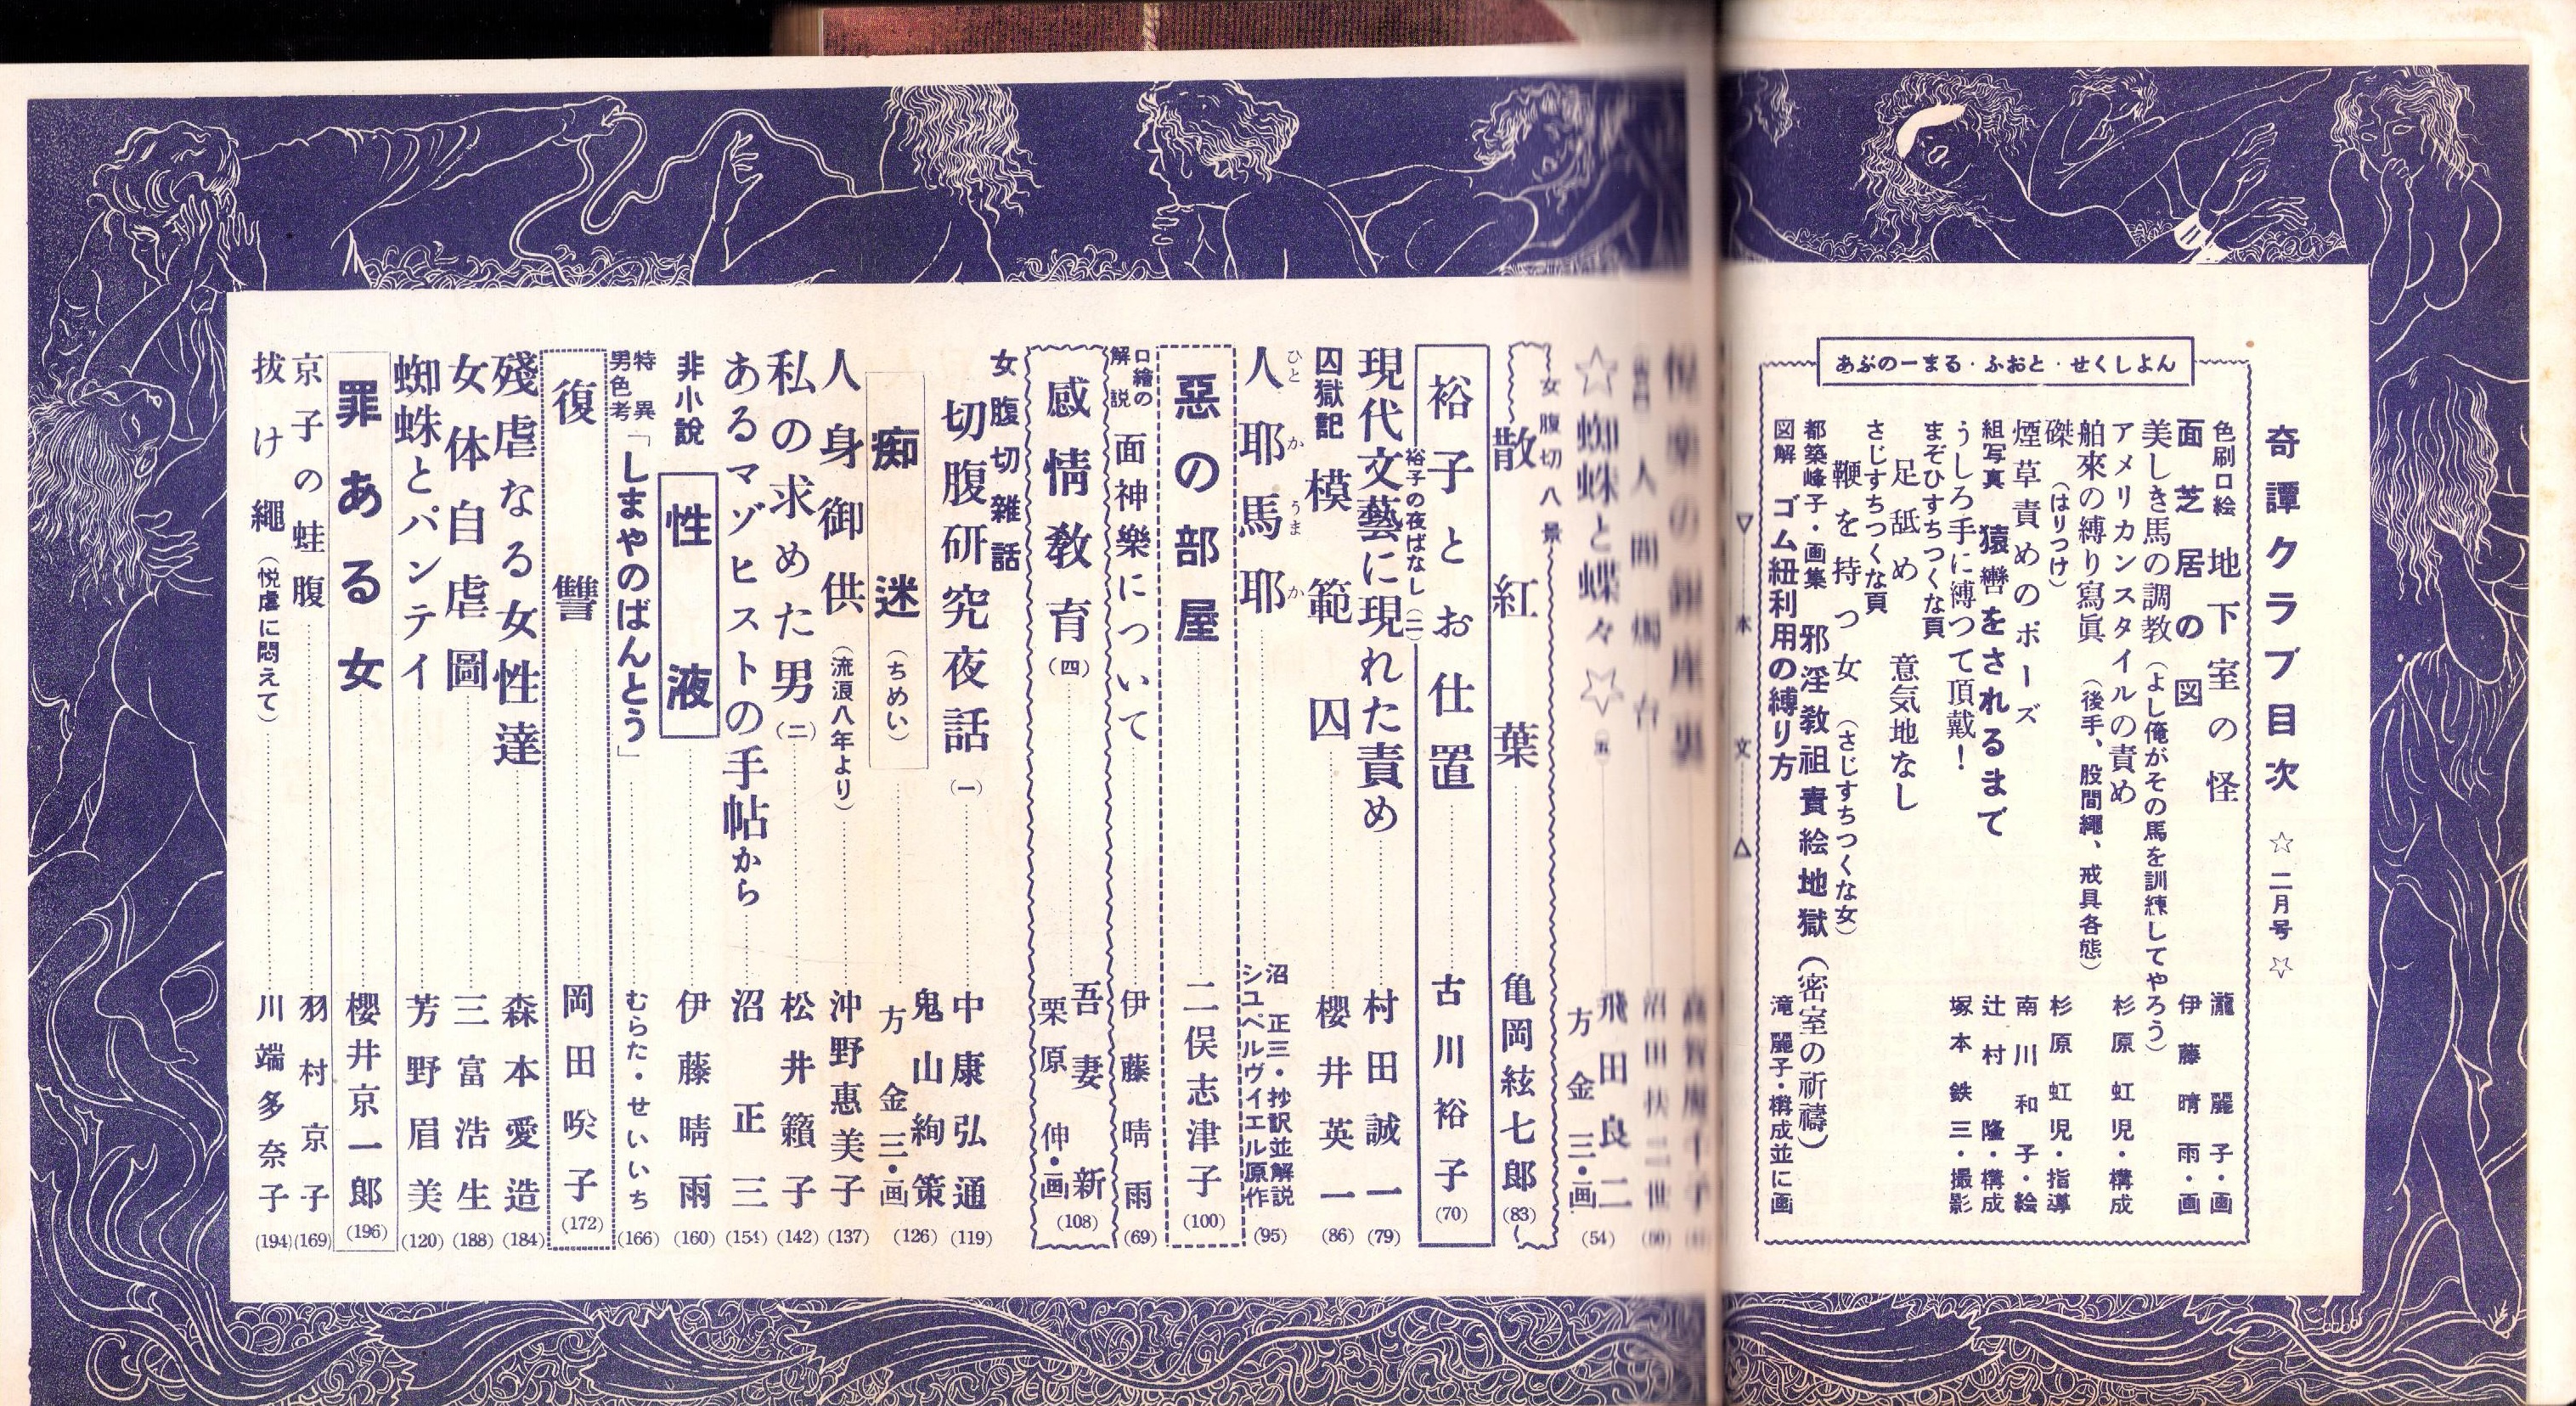 奇譚クラブ目次 ☆二月号☆
あぶのーまる・ふおと・せくしよん
色刷口絵 地下室の怪 瀧麗子・画
面芝居の図 伊藤晴雨・画
美しき馬の調教(よし俺がその馬を訓練してやろう)
アメリカンスタイルの責め 杉原虹児・構成
舶來の縛り寫眞(後手、股間繩、戒具各態)
磔(はりつけ) 杉原虹児・指導
煙草責めのポーズ 南川和子・絵
組写真 猿轡をされるまで 辻村隆・構成
うしろ手に縛つて頂戴! 塚本鉄三・撮影
まぞひすちつくな頁 意気地なし
足舐め
さじすちつくな頁
鞭を持つ女(さじすちつくな女)
都築峰子・画集 邪淫教祖責絵地獄(密室の祈禱)
図解 ゴム紐利用の縛り方 滝麗子・構成並に画
▽ 本文 △
人間燭台 沼田扶二世
☆蜘蛛と蝶々☆ 飛田良二 方金三・画 (54)
女腹切八景
散紅葉 亀岡絃七郎 (83)
裕子とお仕置 古川裕子 (70)
裕子の夜ばなし(二)
現代文藝に現れた責め 村田誠一 (79)
囚獄記 模範囚 櫻井英一 (86)
人耶馬耶 ひとかうまか 沼正三・抄訳並解説 シユペルヴイエル原作 (95)
惡の部屋 二俣志津子 (100)
口繪の解説 面神樂について 伊藤晴雨 (69)
感情教育(四) 吾妻新 栗原伸・画 (108)
女腹切雜話
切腹研究夜話(一) 中康弘通 (119)
痴迷(ちめい) 鬼山絢策 方金三・画 (126)
人身御供(流浪八年より) 沖野惠美子 (137)
私の求めた男(二) 松井籟子 (142)
あるマゾヒストの手帖から 沼正三 (154)
非小說 性液 伊藤晴雨 (160)
特異男色考「しまやのばんとう」 むらた・せいいち (166)
復讐 岡田咲子 (172)
殘虐なる女性達 森本愛造 (184)
女体自虐圖 三富浩生 (188)
蜘蛛とパンテイ 芳野眉美 (120)
罪ある女 櫻井京一郎 (196)
京子の蛙腹 羽村京子 (169)
抜け繩(悦虐に悶えて) 川端多奈子 (194)